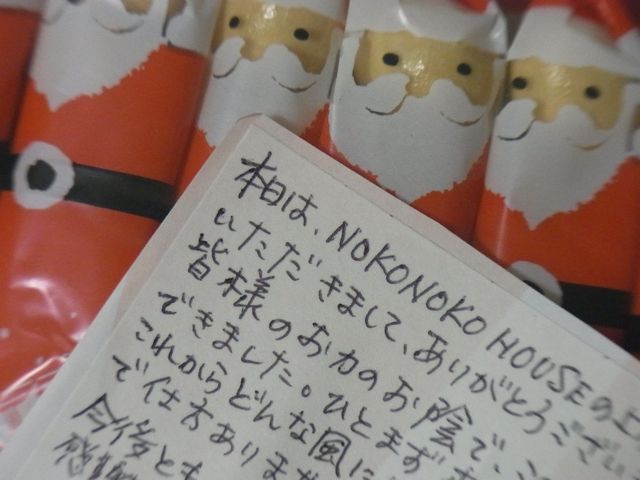 本日は、NOKONOKO HOUSEの上
いただきまして、ありがとうござ
皆様のお力のお陰で、こ
できました。ひとまず
これからどんな風に
で仕方ありませ
今後とも
感謝